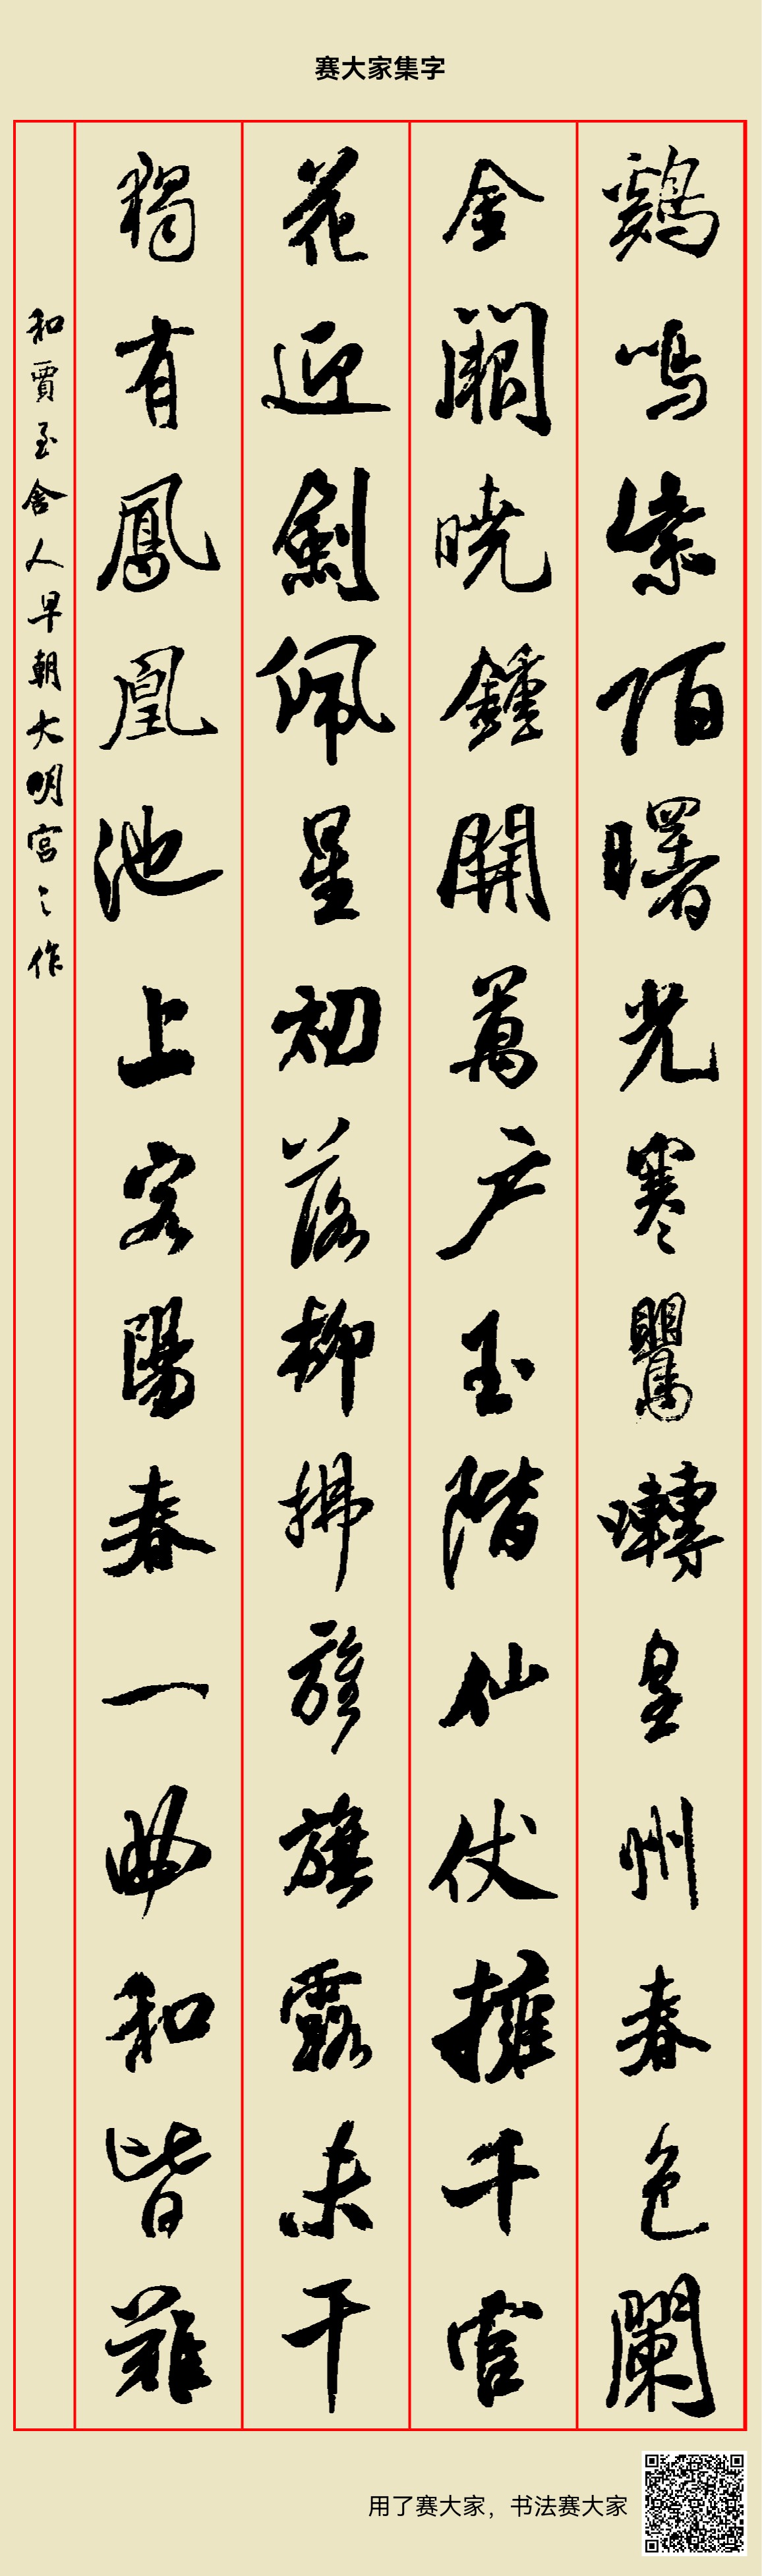 赛大家集字
鷄鳴紫陌曙光寒鸎囀皇州春色闌
金闕曉鍾開萬户玉階仙仗擁千官
花迎劍佩星初落柳拂旌旗露未干
獨有鳳凰池上客陽春一曲和皆難
和賈至舍人早朝大明宮之作
用了赛大家，书法赛大家